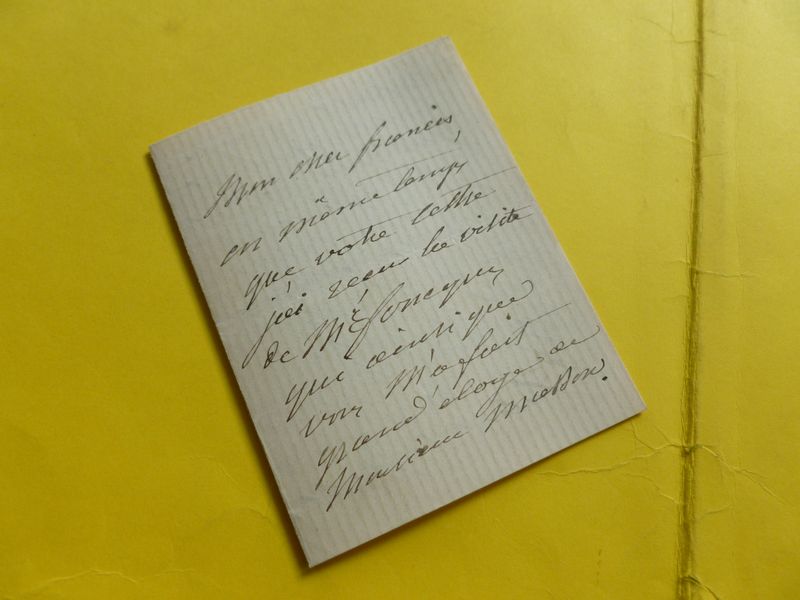 Mon cher francis,
en même temps
que votre lettre
j'ai recu la visite
de Mr
qui ainsi que
vous m'a fait
grand éloge de
Monsieur Masson.